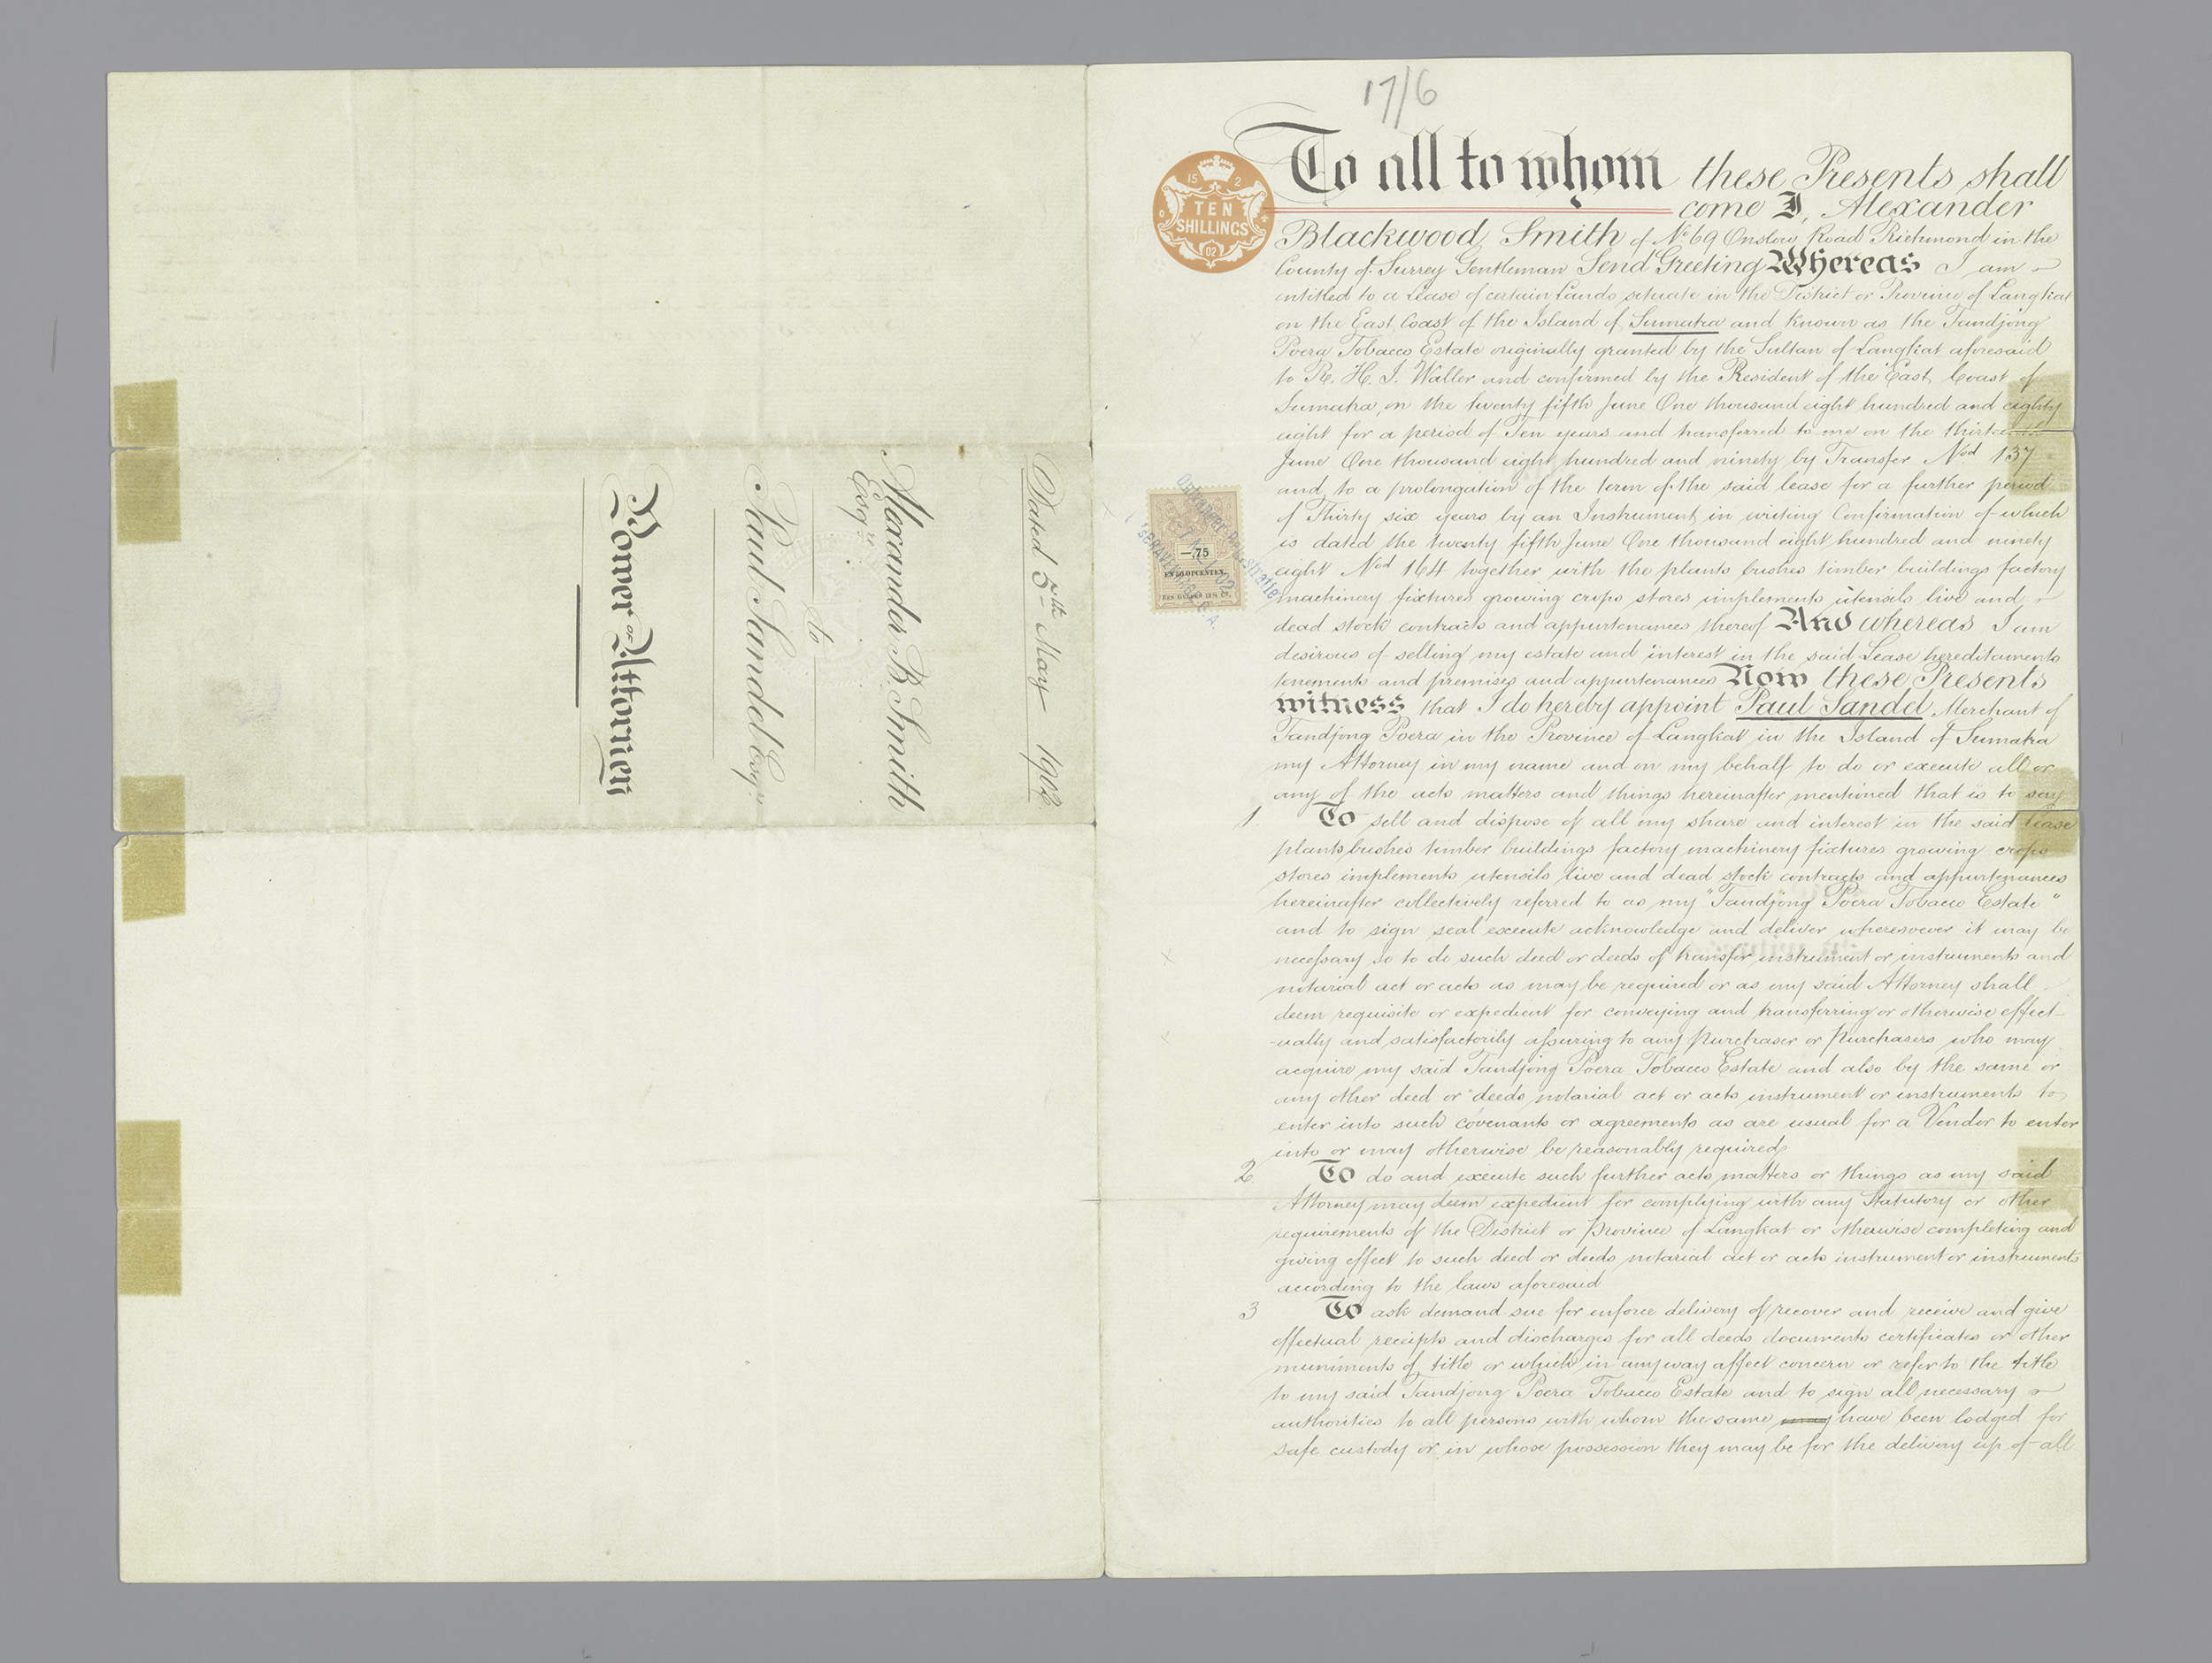 Dated 5th May 1902
Alexander B. Smith
Esqre
to
Paul Sandel Esqre
Power of Attorney
17/6
15 2
TEN
SHILLINGS
02
To all to whom these Presents shall
come I, Alexander
Blackwood Smith of No 69 Onslow Road Richmond in the
County of Surrey Gentleman Send Greeting Whereas I am
intitled to a Lease of certain Lands situate in the District or Province of Langkat
on the East Coast of the Island of Sumatra and known as the Tandjong
Poera Tobacco Estate originally granted by the Sultan of Langkat aforesaid
to R. H. I. Waller and confirmed by the Resident of the East Coast of
Sumatra, on the twenty fifth June One thousand eight hundred and eighty
eight for a period of Ten years and transferred to me on the thirteenth
June One thousand eight hundred and ninety by Transfer Nod 137
and to a prolongation of the term of the said lease for a further period
of Thirty six years by an Instrument in writing Confirmation of which
is dated the twenty fifth June One thousand eight hundred and ninety
eight Nod 164 together with the plants bushes timber buildings factory
machinery fixtures growing crops stores implements utensils live and
dead stock contracts and appurtenances thereof And whereas I am
desirous of selling my estate and interest in the said Lease hereditaments
tenements and premises and appurtenances Now these Presents
witness that I do hereby appoint Paul Sandel Merchant of
Tandjong Poera in the Province of Langkat in the Island of Sumatra
my Attorney in my name and on my behalf to do or execute all or
any of the acts matters and things hereinafter mentioned that is to say
1. To sell and dispose of all my share and interest in the said Lease
plants bushes timber buildings factory machinery fixtures growing crops
stores implements utensils live and dead stock contracts and appurtenances
hereinafter collectively referred to as my "Tandjong Poera Tobacco Estate"
and to sign seal execute acknowledge and deliver wheresoever it may be
necessary so to do such deed or deeds of transfer instrument or instruments and
notarial act or acts as may be required or as my said Attorney shall
deem requisite or expedient for conveying and transferring or otherwise effect-
-ually and satisfactorily assuring to any Purchaser or Purchasers who may
acquire my said Tandjong Poera Tobacco Estate and also by the same or
any other deed or deeds notarial act or acts instrument or instruments to
enter into such covenants or agreements as are usual for a Vendor to enter
into or may otherwise be reasonably required
2. To do and execute such further acts matters or things as my said
Attorney may deem expedient for complying with any Statutory or other
requirements of the District or Province of Langkat or otherwise completing and
giving effect to such deed or deeds notarial act or acts instrument or instruments
according to the laws aforesaid
3 To ask demand sue for enforce delivery of recover and receive and give
effectual receipts and discharges for all deeds documents certificates or other
muniments of title or which in anyway affect concern or refer to the title
to my said Tandjong Poera Tobacco Estate and to sign all necessary
authorities to all persons with whom the same may have been lodged for
safe custody or in whose possession they may be for the delivery up of all
—,75